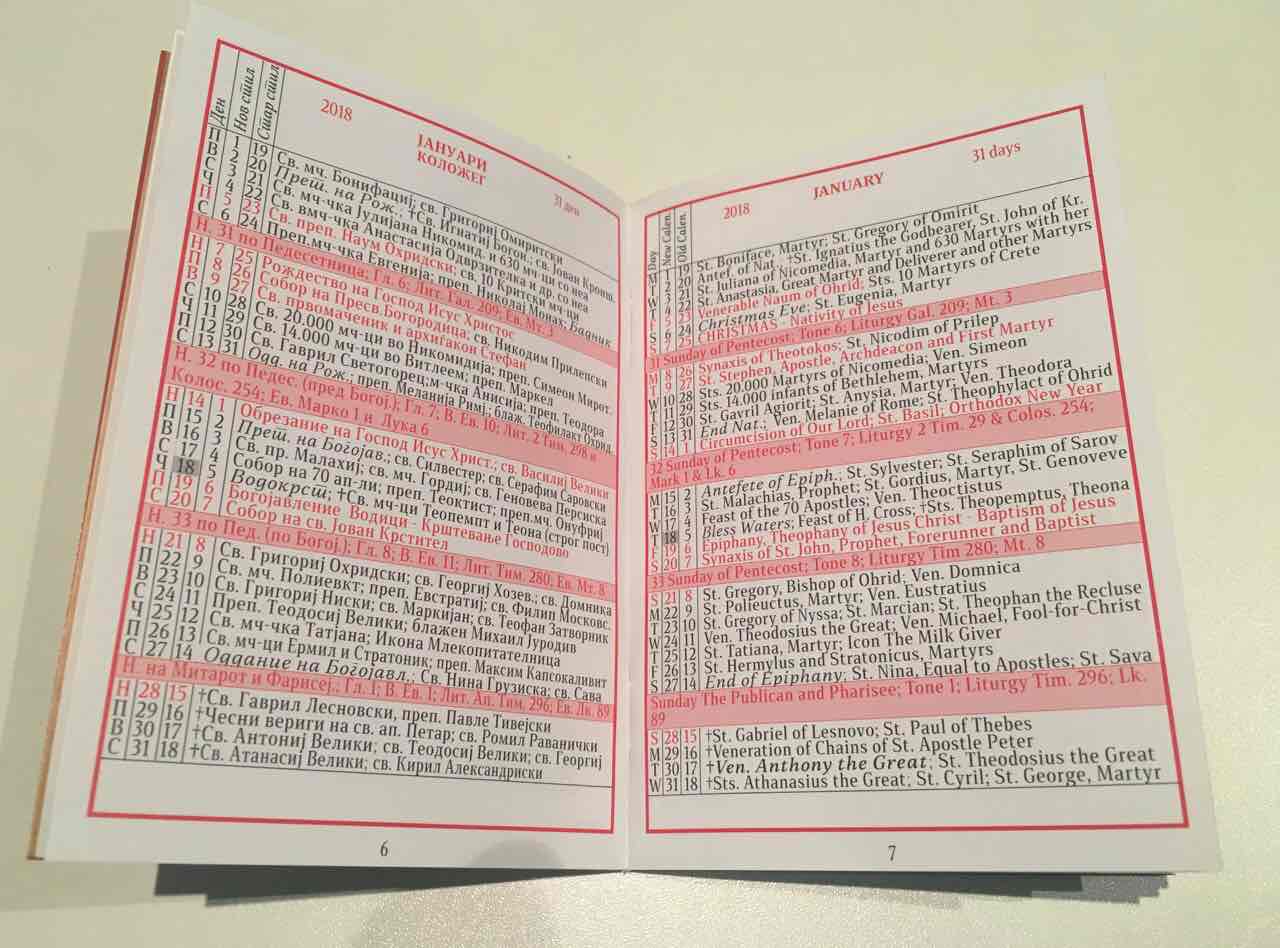 Ден Нов стил Стар стил
2018
ЈАНУАРИ
КОЛОЖЕГ
31 ден
П 1 19 Св. мч. Бонифациј; св. Григориј Омиритски
В 2 20 Прет. на Рож.; †Св. Игнатиј Богон.; св. Јован Кронш.
С 3 21 Св. мч-чка Јулијана Никомид. и 630 мч-ци со неа
Ч 4 22 Св. вмч-чка Анастасија Одврзителка и др. со неа
П 5 23 Св. преп. Наум Охридски; св. 10 Критски мч-ци
С 6 24 Преп.мч-чка Евгенија; преп. Николај Монах; Бадник
Н. 31 по Педесетница; Гл. 6; Лит. Гал. 209; Ев. Мт. 3
Н 7 25 Рождество на Господ Исус Христос
П 8 26 Собор на Пресв.Богородица; св. Никодим Прилепски
В 9 27 Св. првомаченик и архиѓакон Стефан
С 10 28 Св. 20.000 мч-ци во Никомидија; преп. Симеон Мирот.
Ч 11 29 Св. 14.000 мч-ци во Витлеем; преп. Маркел
П 12 30 Св. Гаврил Светогорец;м-чка Анисија; преп. Теодора
С 13 31 Одд. на Рож.; преп. Меланија Римј; блаж. Теофилакт Охрид.
Н. 32 по Педес. (пред Богој.); Гл. 7; В. Ев. 10; Лит. 2 Тим. 298 и
Колос. 254; Ев. Марко 1 и Лука 6
Н 14 1 Обрезание на Господ Исус Христ.; св. Василиј Велики
П 15 2 Прет. на Богојав.; св. Силвестер; св. Серафим Саровски
В 16 3 Св. пр. Малахиј; св. мч. Гордиј; св. Геновева Персиска
С 17 4 Собор на 70 ап-ли; преп. Теоктист; преп.мч. Онуфриј
Ч 18 5 Водокрст; †Св. мч-ци Теопемпт и Теона (строг пост)
П 19 6 Богојавление Водици - Крштевање Господово
С 20 7 Собор на св. Јован Крстител
Н. 33 по Пед. (по Богој.); Гл. 8; В. Ев. 11; Лит. Тим. 280; Ев. Мт. 8
Н 21 8 Св. Григориј Охридски; св. Георгиј Хозев.; св. Домника
П 22 9 Св. мч. Полиевкт; преп. Евстратиј; св. Филип Московс.
В 23 10 Св. Григориј Ниски; св. Маркијан; св. Теофан Затворник
С 24 11 Преп. Теодосиј Велики; блажен Михаил Јуродив
Ч 25 12 Св. мч-чка Татјана; Икона Млекопитателница
П 26 13 Св. мч-ци Ермил и Стратоник; преп. Максим Капсокаливит
С 27 14 Оддание на Богојавл.; Св. Нина Грузиска; св. Сава
Н. на Митарот и Фарисеј.; Гл. 1; В. Ев. 1; Лит. Ап. Тим. 296; Ев. Лк. 89
Н 28 15 †Св. Гаврил Лесновски, преп. Павле Тивејски
П 29 16 †Чесни вериги на св. ап. Петар; св. Ромил Раванички
В 30 17 †Св. Антониј Велики; св. Теодосиј Велики; св. Георгиј
С 31 18 †Св. Атанасиј Велики; св. Кирил Александриски
6
Day New Calen. Old Calen.
2018
JANUARY
31 days
M 1 19 St. Boniface, Martyr; St. Gregory of Omirit
T 2 20 Antef. of Nat. †St. Ignatius the Godbearer, St. John of Kr.
W 3 21 St. Juliana of Nicomedia, Martyr and 630 Martyrs with her
T 4 22 St. Anastasia, Great Martyr and Deliverer and other Martyrs
F 5 23 Venerable Naum of Ohrid; Sts. 10 Martyrs of Crete
S 6 24 Christmas Eve; St. Eugenia, Martyr
S 7 25 CHRISTMAS - Nativity of Jesus
31 Sunday of Pentecost; Tone 6; Liturgy Gal. 209; Mt. 3
M 8 26 Synaxis of Theotokos; St. Nicodim of Prilep
T 9 27 St. Stephen, Apostle, Archdeacon and First Martyr
W 10 28 Sts. 20.000 Martyrs of Nicomedia; Ven. Simeon
T 11 29 Sts. 14.000 infants of Bethlehem, Martyrs
F 12 30 St. Gavril Agiorit; St. Anysia, Martyr; Ven. Theodora
S 13 31 End Nat.; Ven. Melanie of Rome; St. Theophylact of Ohrid
S 14 1 Circumcision of Our Lord; St. Basil; Orthodox New Year
32 Sunday of Pentecost; Tone 7; Liturgy 2 Tim. 29 & Colos. 254;
Mark 1 & Lk. 6
M 15 2 Antefete of Epiph.; St. Sylvester; St. Seraphim of Sarov
T 16 3 St. Malachias, Prophet; St. Gordius, Martyr, St. Genoveve
W 17 4 Feast of the 70 Apostles; Ven. Theoctistus
T 18 5 Bless Waters; Feast of H. Cross; †Sts. Theopemptus, Theona
F 19 6 Epiphany, Theophany of Jesus Christ - Baptism of Jesus
S 20 7 Synaxis of St. John, Prophet, Forerunner and Baptist
33 Sunday of Pentecost; Tone 8; Liturgy Tim 280; Mt. 8
S 21 8 St. Gregory, Bishop of Ohrid; Ven. Domnica
M 22 9 St. Polieuctus, Martyr; Ven. Eustratius
T 23 10 St. Gregory of Nyssa; St. Marcian; St. Theophan the Recluse
W 24 11 Ven. Theodosius the Great; Ven. Michael, Fool-for-Christ
T 25 12 St. Tatiana, Martyr; Icon The Milk Giver
F 26 13 St. Hermylus and Stratonicus, Martyrs
S 27 14 End of Epiphany; St. Nina, Equal to Apostles; St. Sava
Sunday The Publican and Pharisee; Tone 1; Liturgy Tim. 296; Lk.
89
S 28 15 †St. Gabriel of Lesnovo; St. Paul of Thebes
M 29 16 †Veneration of Chains of St. Apostle Peter
T 30 17 †Ven. Anthony the Great; St. Theodosius the Great
W 31 18 †Sts. Athanasius the Great; St. Cyril; St. George, Martyr
7